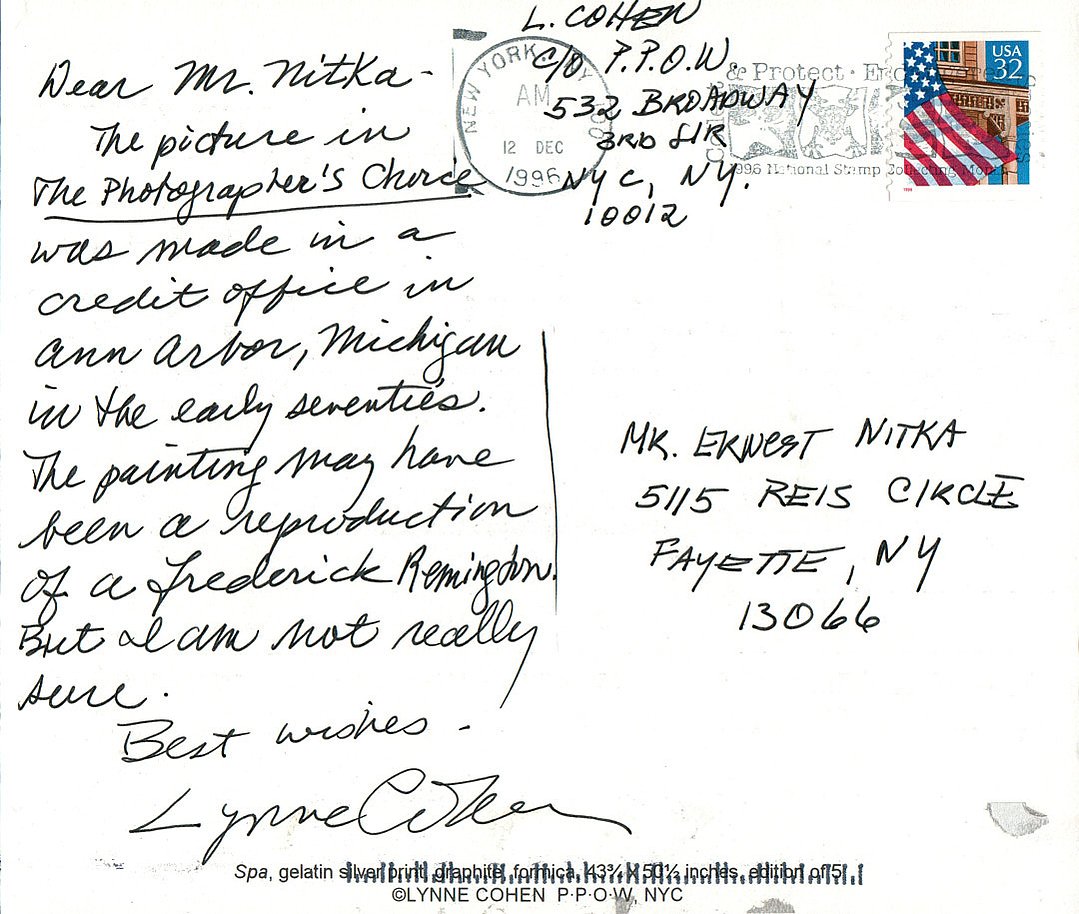 L. COHEN
C/O P.P.O.W.
532 BROADWAY
3RD FLR
NYC, NY.
10012
NEW YORK, NY
AM
12 DEC
1996
& Protect
1996 National Stamp Collecting Month
USA
32
Dear Mr. Nitka -
The picture in
The Photographer's Choice
was made in a
credit office in
Ann Arbor, Michigan
in the early seventies.
The painting may have
been a reproduction
of a Frederick Remington.
But I am not really
sure.
Best wishes -
Lynne Cohen
MR. ERNEST NITKA
5115 REIS CIRCLE
FAYETTE, NY
13066
Spa, gelatin silver print, graphite, formica, 43¾ X 50½ inches, edition of 5
©LYNNE COHEN P·P·O·W, NYC